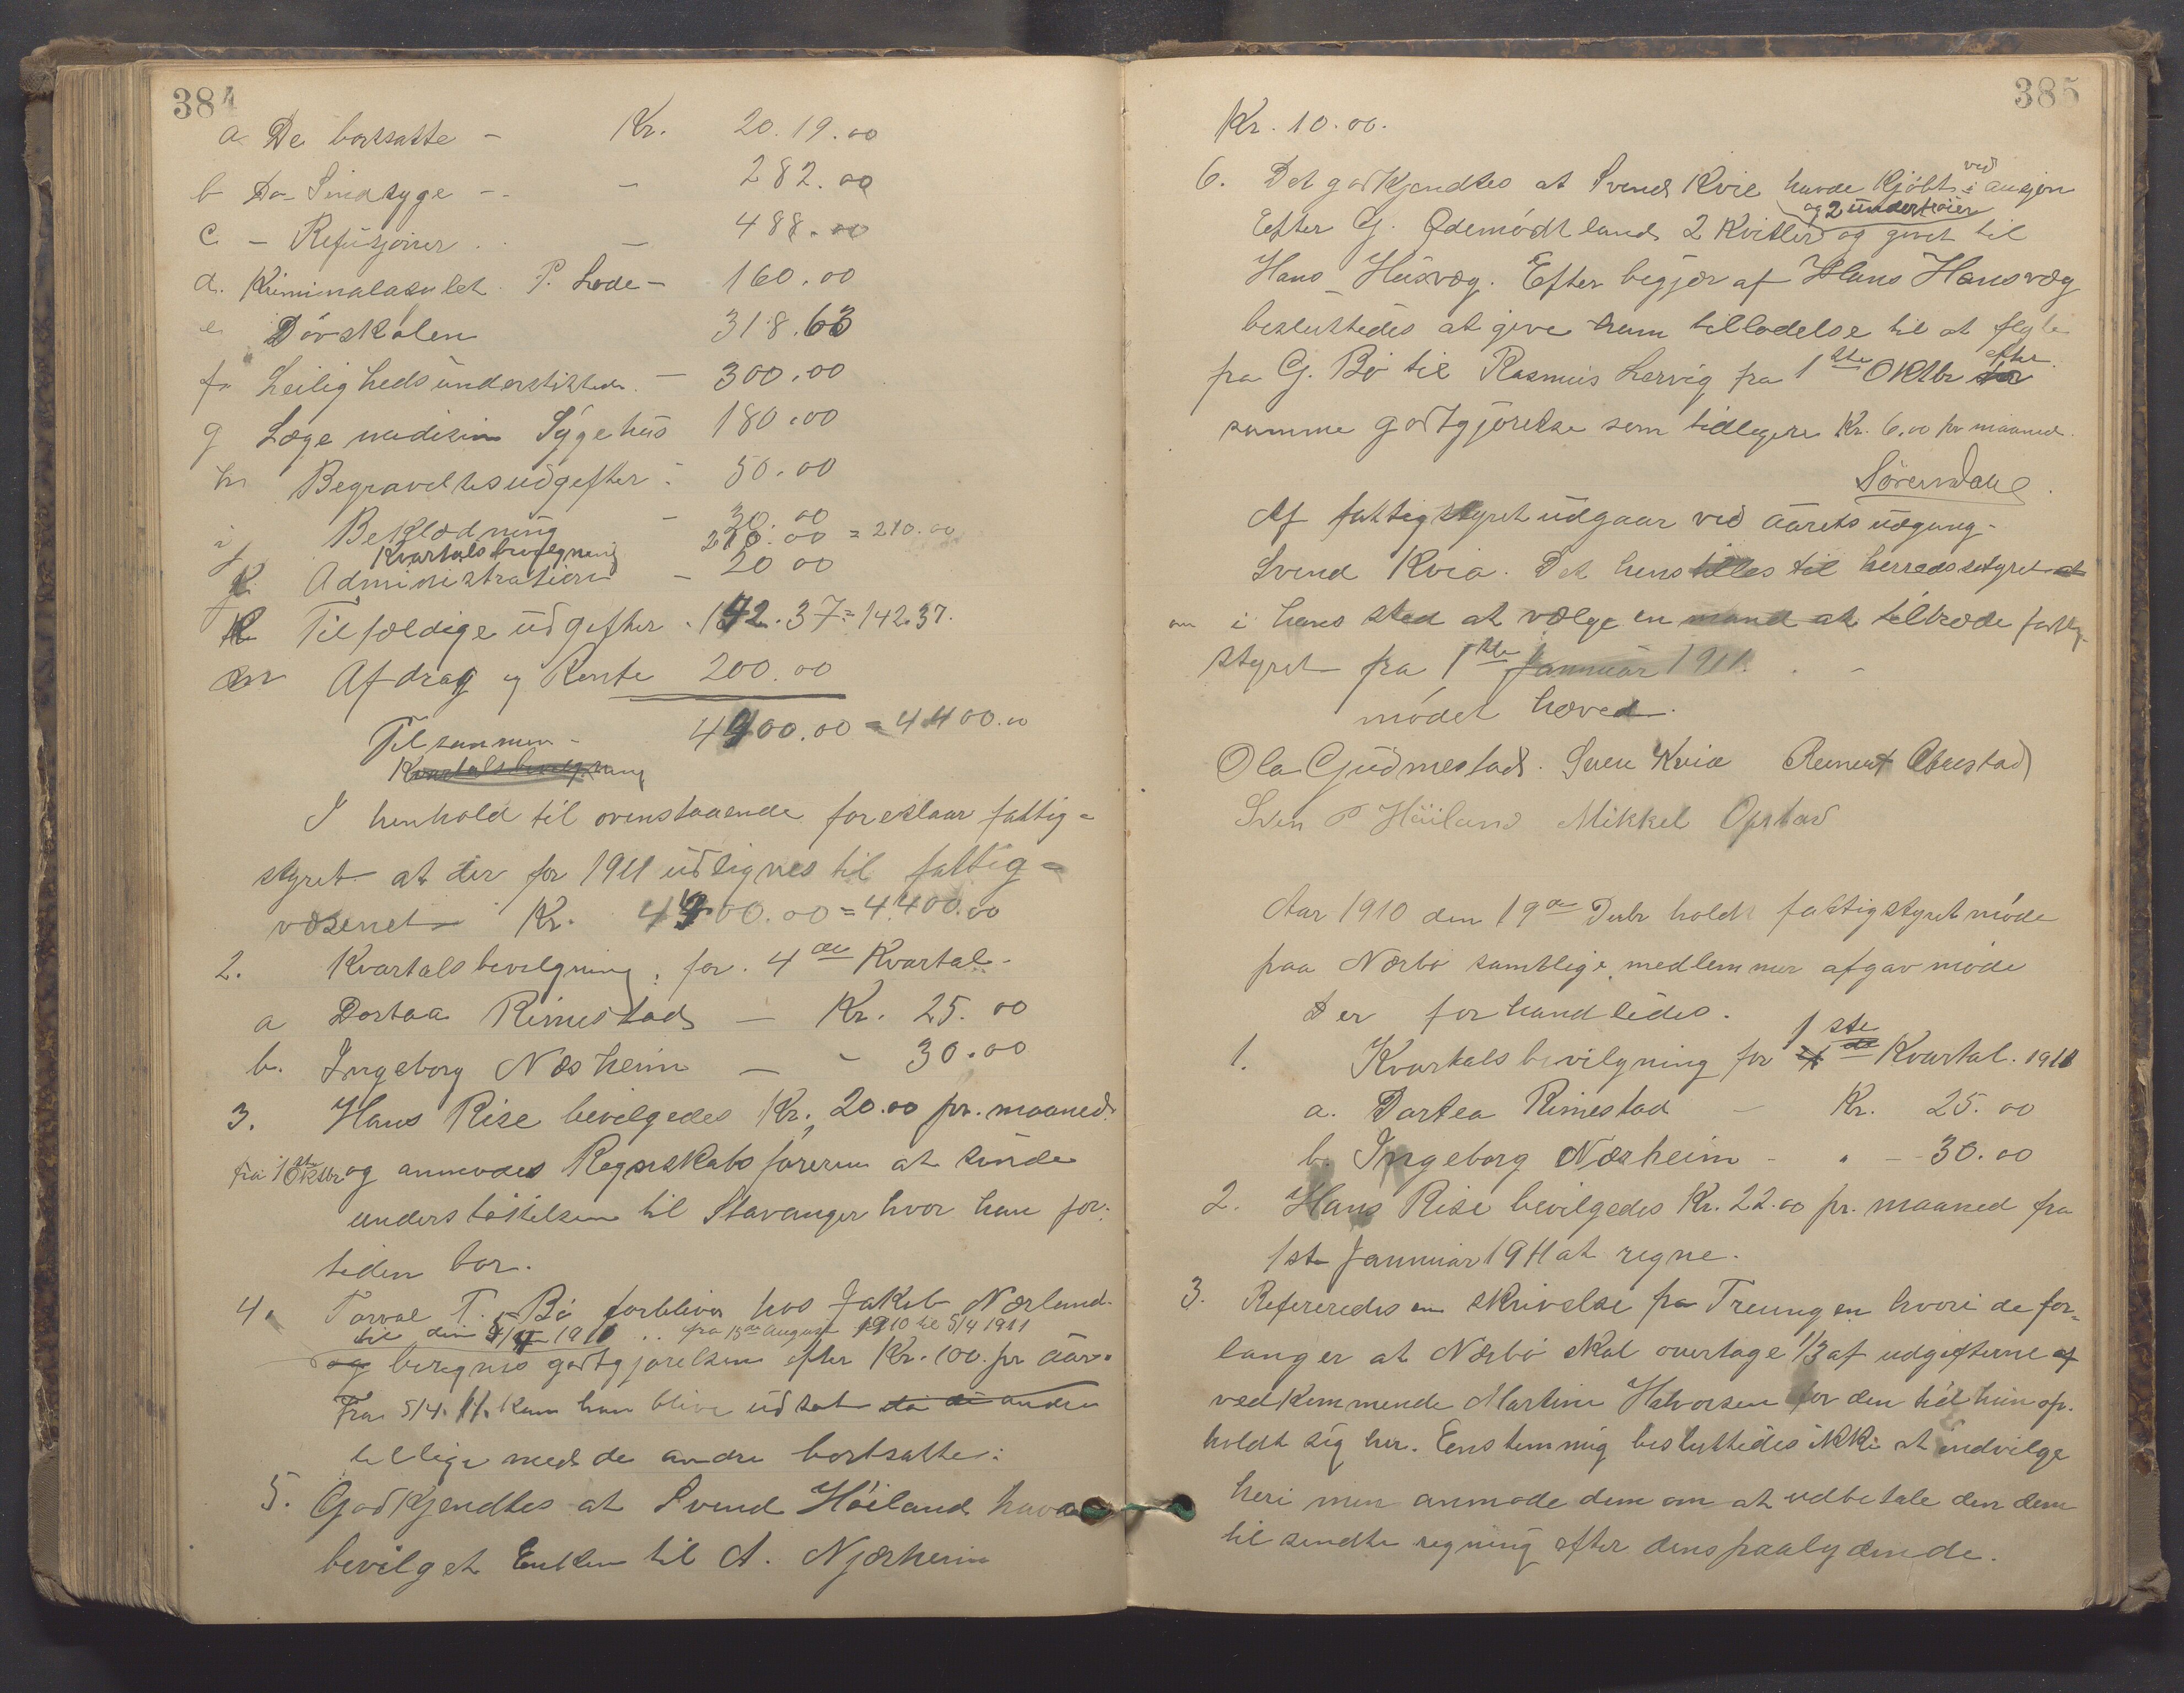 384
a De bortsatte - Kr. 20.19.00
b Do Sindsyge - - 282.00
c - Refusjoner - 488.00
d. Kriminalasylet P. Lode - 160.00
e Dövskolen 318.63
f Leilighedsunderstöttelse - 300.00
g Læge medisin Sygehus 180.00
h Begravelsesudgifter - 50.00
i Beklædning - 30.00
j Kvartalsbevilgning 210.00 = 210.00
k. Administration - 20 00
l Tilfældige udgifter . 142.37 = 142.37.
m Afdrag og Rente 200.00
Tilsammen - 4400.00 = 4400.00
Kvartalsbevilgning
I henhold til ovenstaaende foreslaar fattig=
styret at der for 1911 udlignes til fattig=
væsenet Kr. 4400.00 = 4.400.00
2. Kvartalsbevilgning for 4de Kvartal-
a Dortaa Rimestad - Kr. 25.00
b. Ingeborg Næsheim - - 30.00
3. Hans Rise bevilgedes Kr. 20.00 pr. maaned
fra 1ste Oktbr og anmodes Regnskabsföreren at sende
understöttelsen til Stavanger hvor han for-
tiden bor.
4. Torval T. Bö forbliver hos Jakob Nærland
til den 5/4 1911 .. fra 15de August 1910 til 5/4 1911
og beregnes godtgjørelsen efter Kr. 100. pr aar.
Fra 5/4. 11. kan han blive udsat da de andre
tillige med de andre bortsatte.
5. Godkjendtes at Svend Höiland havde
bevilget Enken til A. Njærheim
385
Kr. 10.00.
6. Det godkjendtes at Svend Kvie havde kjöbt i ved auksjon
og 2 undertröier
Efter G. Ödemödtland 2 Kvitler og givet til
Hans Husvæg. Efter begjær af Hans Hansvæg
besluttedes at give ham tilladelse til at flytte
fra G. Bö til Rasmus Lervig fra 1ste Oktbr for efter
samme godtgjörelse som tidligere Kr. 6.00 pr maaned.
Sörensdatte
Af fattigstyret udgaar ved aarets udgang-
Svend Kvia. Det henstilles til herredsstyret at
om i hans sted at vælge en mand at tiltræde fattig-
styret fra 1ste Januar 1911. . -
mödet hævet.
Ola Gudmestad. Sven Kvia Reinert Obrestad
Sven P Höiland Mikkel Opstad
Aar 1910 den 19de Desbr holdt fattigstyret möde
paa Nærbö samtlige medlemmer afgav möde
Der forhandledes.
1. Kvartalsbevilgning for 4de 1ste Kvartal. 1911
a. Dortea Rimestad - Kr. 25.00
b. Ingeborg Nærheim - " - 30.00
2. Hans Rise bevilgedes Kr. 22.00 pr. maaned fra
1ste Januar 1911 at regne.
3. Refereredes en skrivelse fra Treungen hvori de for-
langer at Nærbö skal overtage 1/3 af udgifterne af
vedkommende Martine Halvorsen for den tid hun op-
holdt sig her. Enstemmig besluttedes ikke at indvilge
heri men anmode dem om at udbetale den dem
tilsendte regning efter dens paalydende.